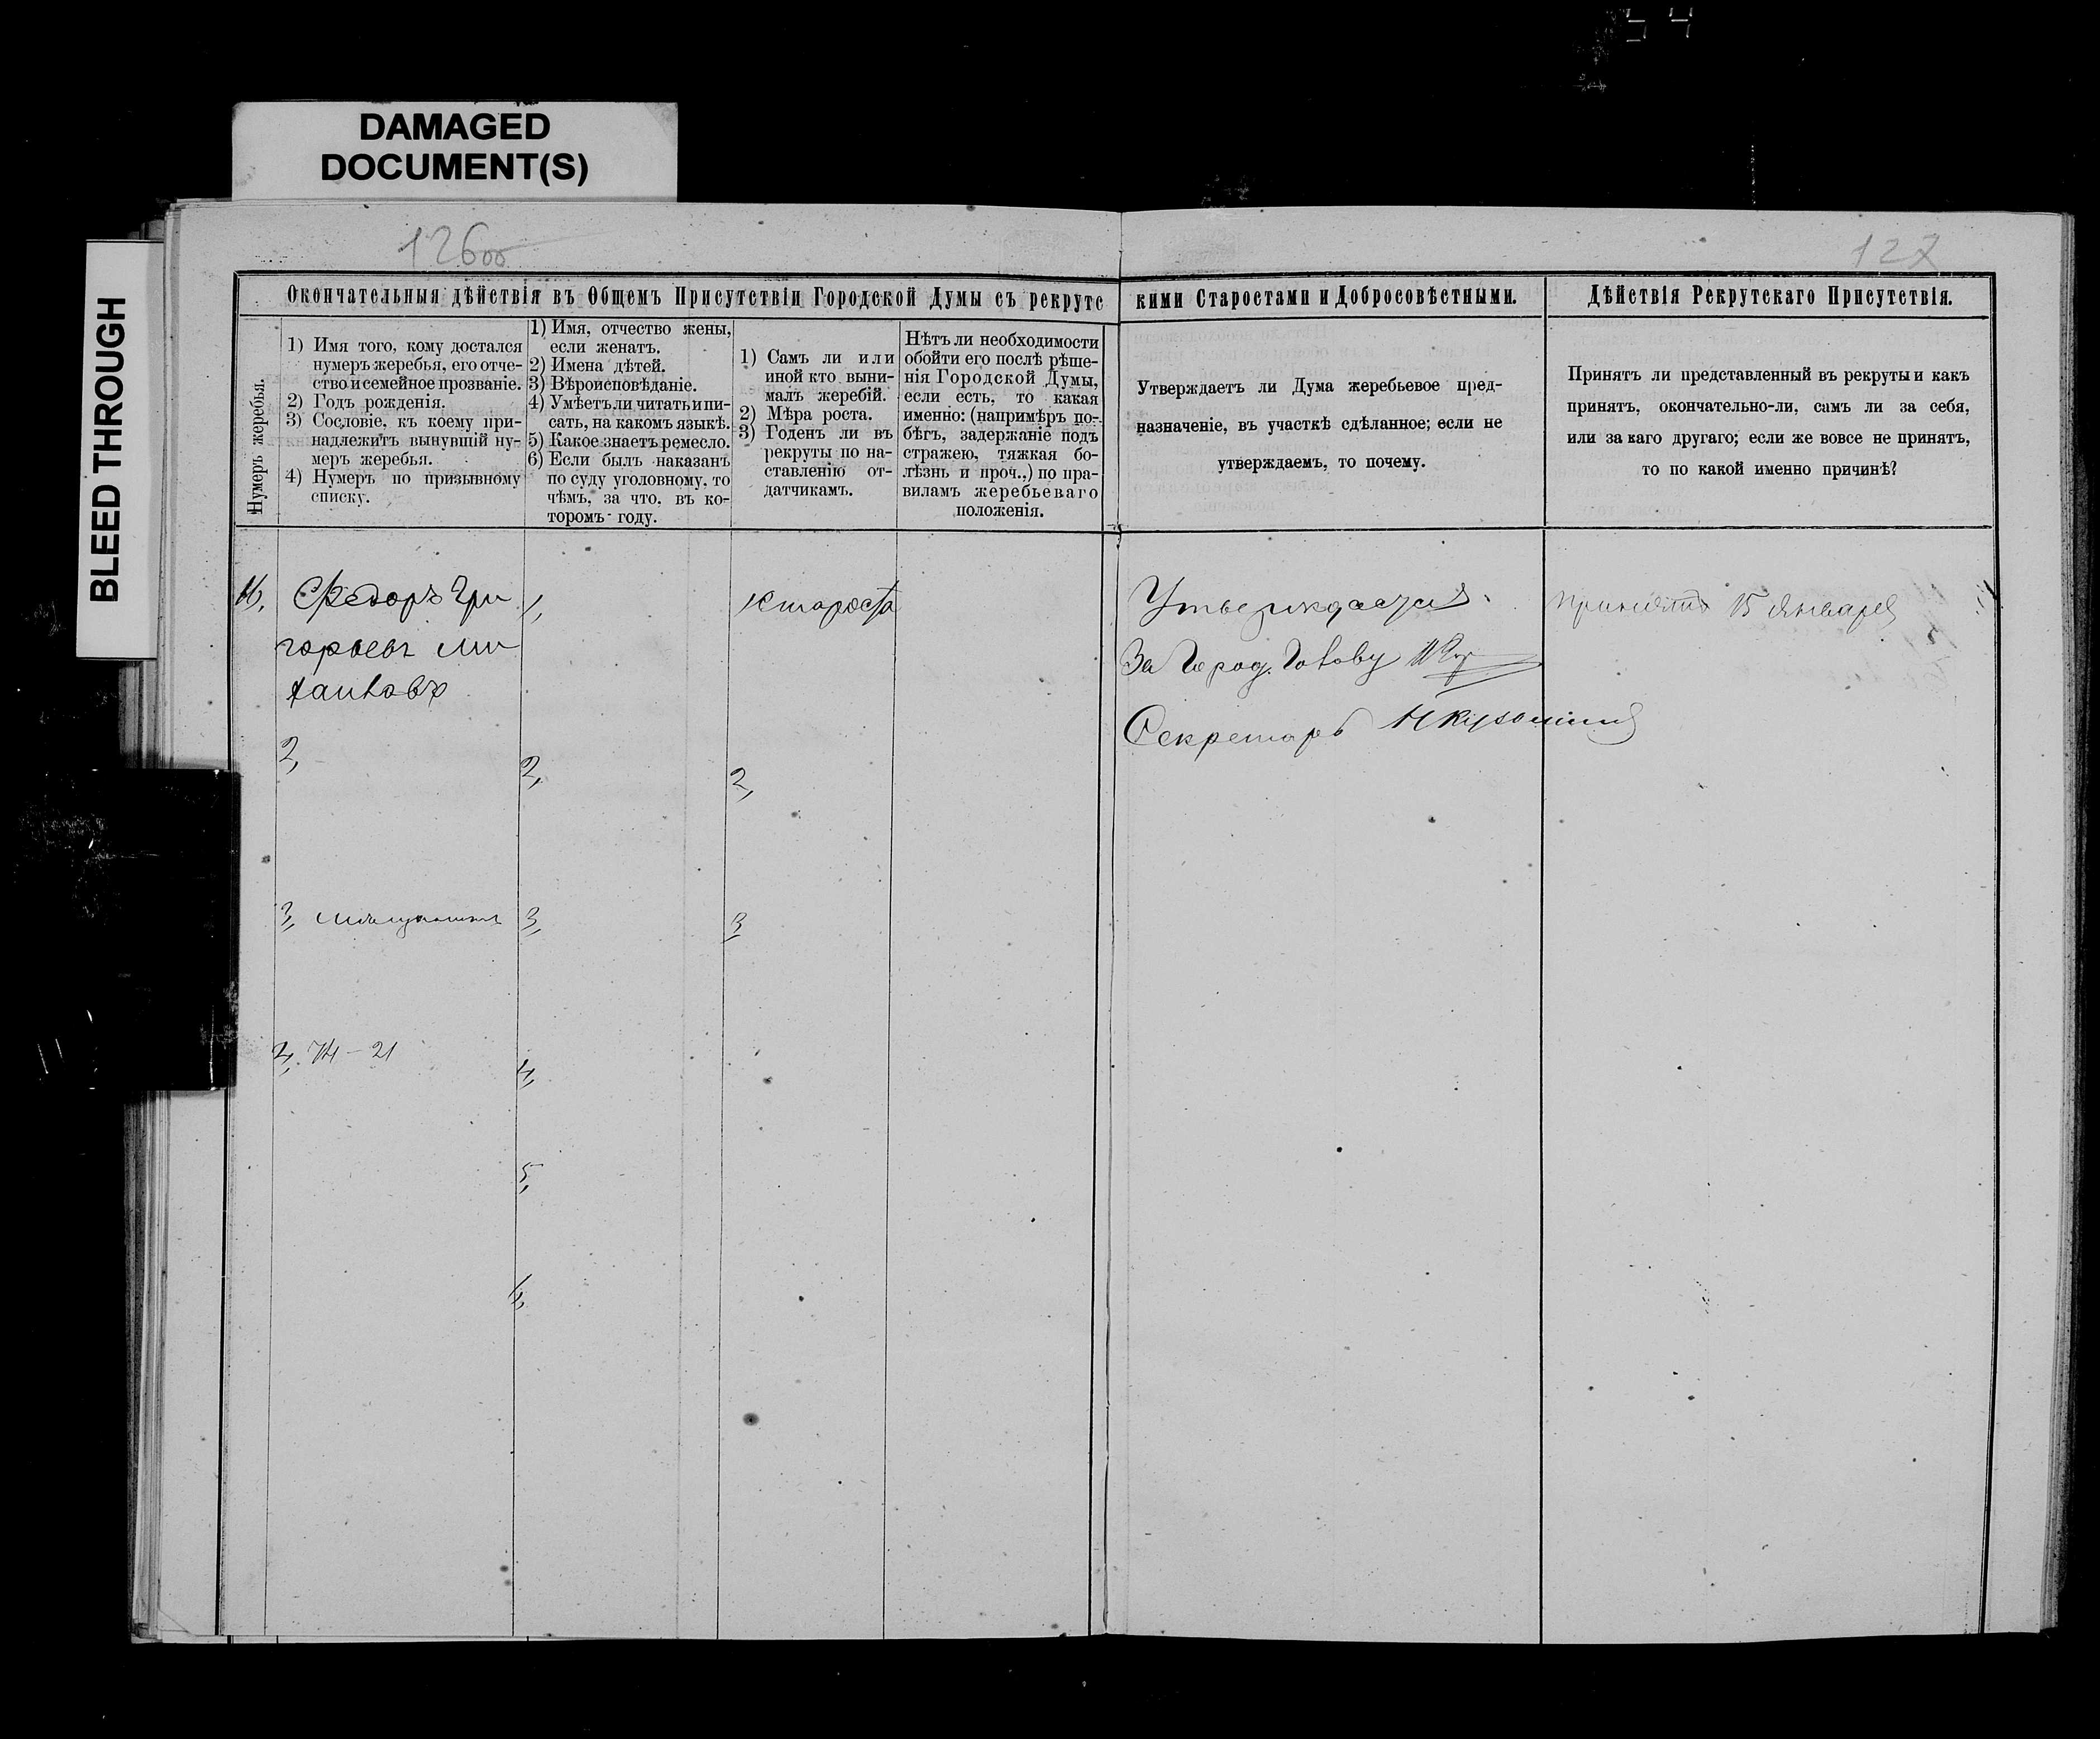 DAMAGED
DOCUMENT(S)
BLEED THROUGH
126об
127
Окончательныя дѣйствія въ Общемъ Присутствіи Городской Думы съ рекрутс
кими Старостами и Добросовѣстными.
Дѣйствія Рекрутскаго Присутствія.
Нумеръ жеребья.
1) Имя того, кому достался
нумеръ жеребья, его отче-
ство и семейное прозваніе.
2) Годъ рожденія.
3) Сословіе, къ коему при-
надлежитъ вынувшій ну-
меръ жеребья.
4) Нумеръ по призывному
списку.
1) Имя, отчество жены,
если женатъ.
2) Имена дѣтей.
3) Вѣроисповѣданіе.
4) Умѣетъ ли читать и пи-
сать, на какомъ языкѣ.
5) Какое знаетъ ремесло.
6) Если былъ наказанъ
по суду уголовному, то
чѣмъ, за что, въ ко-
торомъ году.
1) Самъ ли или
иной кто выни-
малъ жеребій.
2) Мѣра роста.
3) Годенъ ли въ
рекруты по на-
ставленію от-
датчикамъ.
Нѣтъ ли необходимости
обойти его послѣ рѣше-
нія Городской Думы,
если есть, то какая
именно: (напримѣръ по-
бѣгъ, задержаніе подъ
стражею, тяжкая бо-
лѣзнь и проч.,) по пра-
виламъ жеребьеваго
положенія.
Утверждаетъ ли Дума жеребьевое пред-
назначеніе, въ участкѣ сдѣланное; если не
утверждаемъ, то почему.
Принятъ ли представленный въ рекруты и какъ
принятъ, окончательно-ли, самъ ли за себя,
или за каго другаго; если же вовсе не принятъ,
то по какой именно причинѣ?
Федоръ Гри
горьевъ Ми
хайловъ
2,
3, мѣщанинъ
4, 74 - 21
1,
2,
3,
4,
5,
староста
2,
3
Утверждается
За Город. Голову
Секретарь
принятъ 15 Января